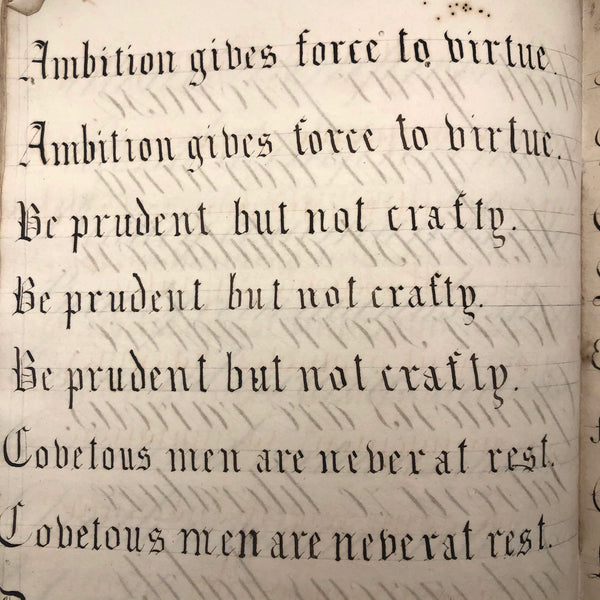 Ambition gives force to virtue.
Ambition gives force to virtue.
Be prudent but not crafty.
Be prudent but not crafty.
Be prudent but not crafty.
Covetous men are never at rest.
Covetous men are never at rest.